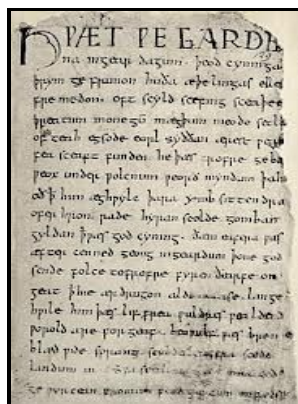 HǷÆT ǷE GARDE
na ingear dagum. þeod cyninga
þrym ge frunon huða æþelingas ellen
fre medon. oft scyld scefing sceaþen
þreatum monegū mægþum meodo setla
of teah egsode eorl syððan ærest ƿearð
fea sceaft funden he þæs frofre geba
ƿeox under ƿolcnum ƿeorð myndum þah
oð þ him æghƿylc þara ymb sittendra
ofer hron rade hyran scolde gomban
gyldan þæt ƿæs god cyning. ðæm eafera ƿæs
æfter cenned geong in geardum þone god
sende folce to frofre fyren ðearfe on
geat þ hie ær drugon aldor ase. lange
hƿile him þæs lif frea ƿuldres ƿealdend
ƿorold are for geaf. ƿæs breme
blæd ƿide sprang scyldes eafera scede
landum in